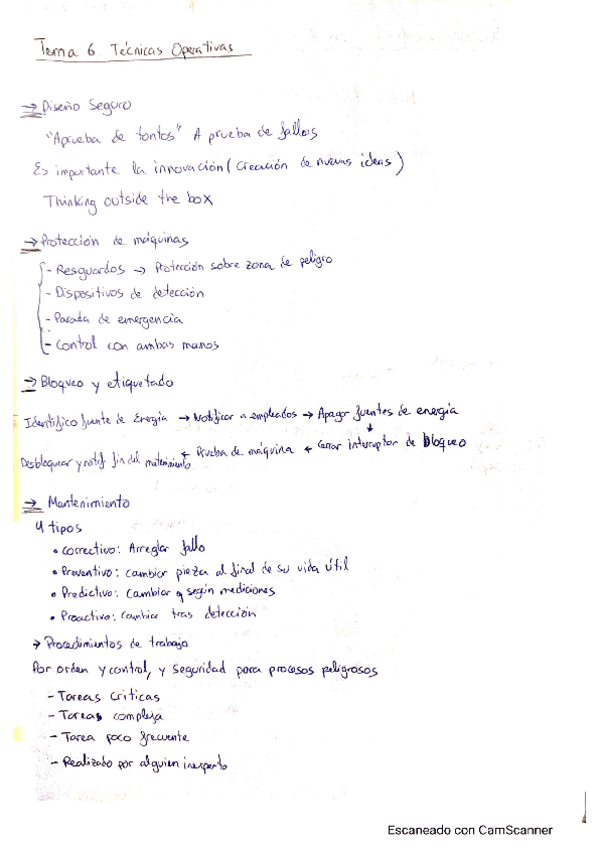 Tema 6 Técnicas Operativas
→ Diseño Seguro
"Aprueba de tontos" A prueba de fallos
Es importante la innovación (Creación de nuevas ideas)
Thinking outside the box
→ Protección de máquinas
- Resguardos → Protección sobre zona de peligro
- Dispositivos de detección
- Parada de emergencia
- Control con ambas manos
→ Bloqueo y etiquetado
Identifico fuente de Energía → Notificar a empleados → Apagar fuentes de energía
↓
Desbloquear y notif fin del mantenimiento ← Prueba de máquina ← Cerrar interruptor de Bloqueo
→ Mantenimiento
4 tipos
• Correctivo: Arreglar fallo
• Preventivo: cambiar pieza al final de su vida útil
• Predictivo: Cambiar según mediciones
• Proactivo: Cambiar tras detección
→ Procedimientos de trabajo
Por orden y control, y seguridad para procesos peligrosos
- Tareas críticas
- Tareas compleja
- Tarea poco frecuente
- Realizado por alguien inexperto
Escaneado con CamScanner